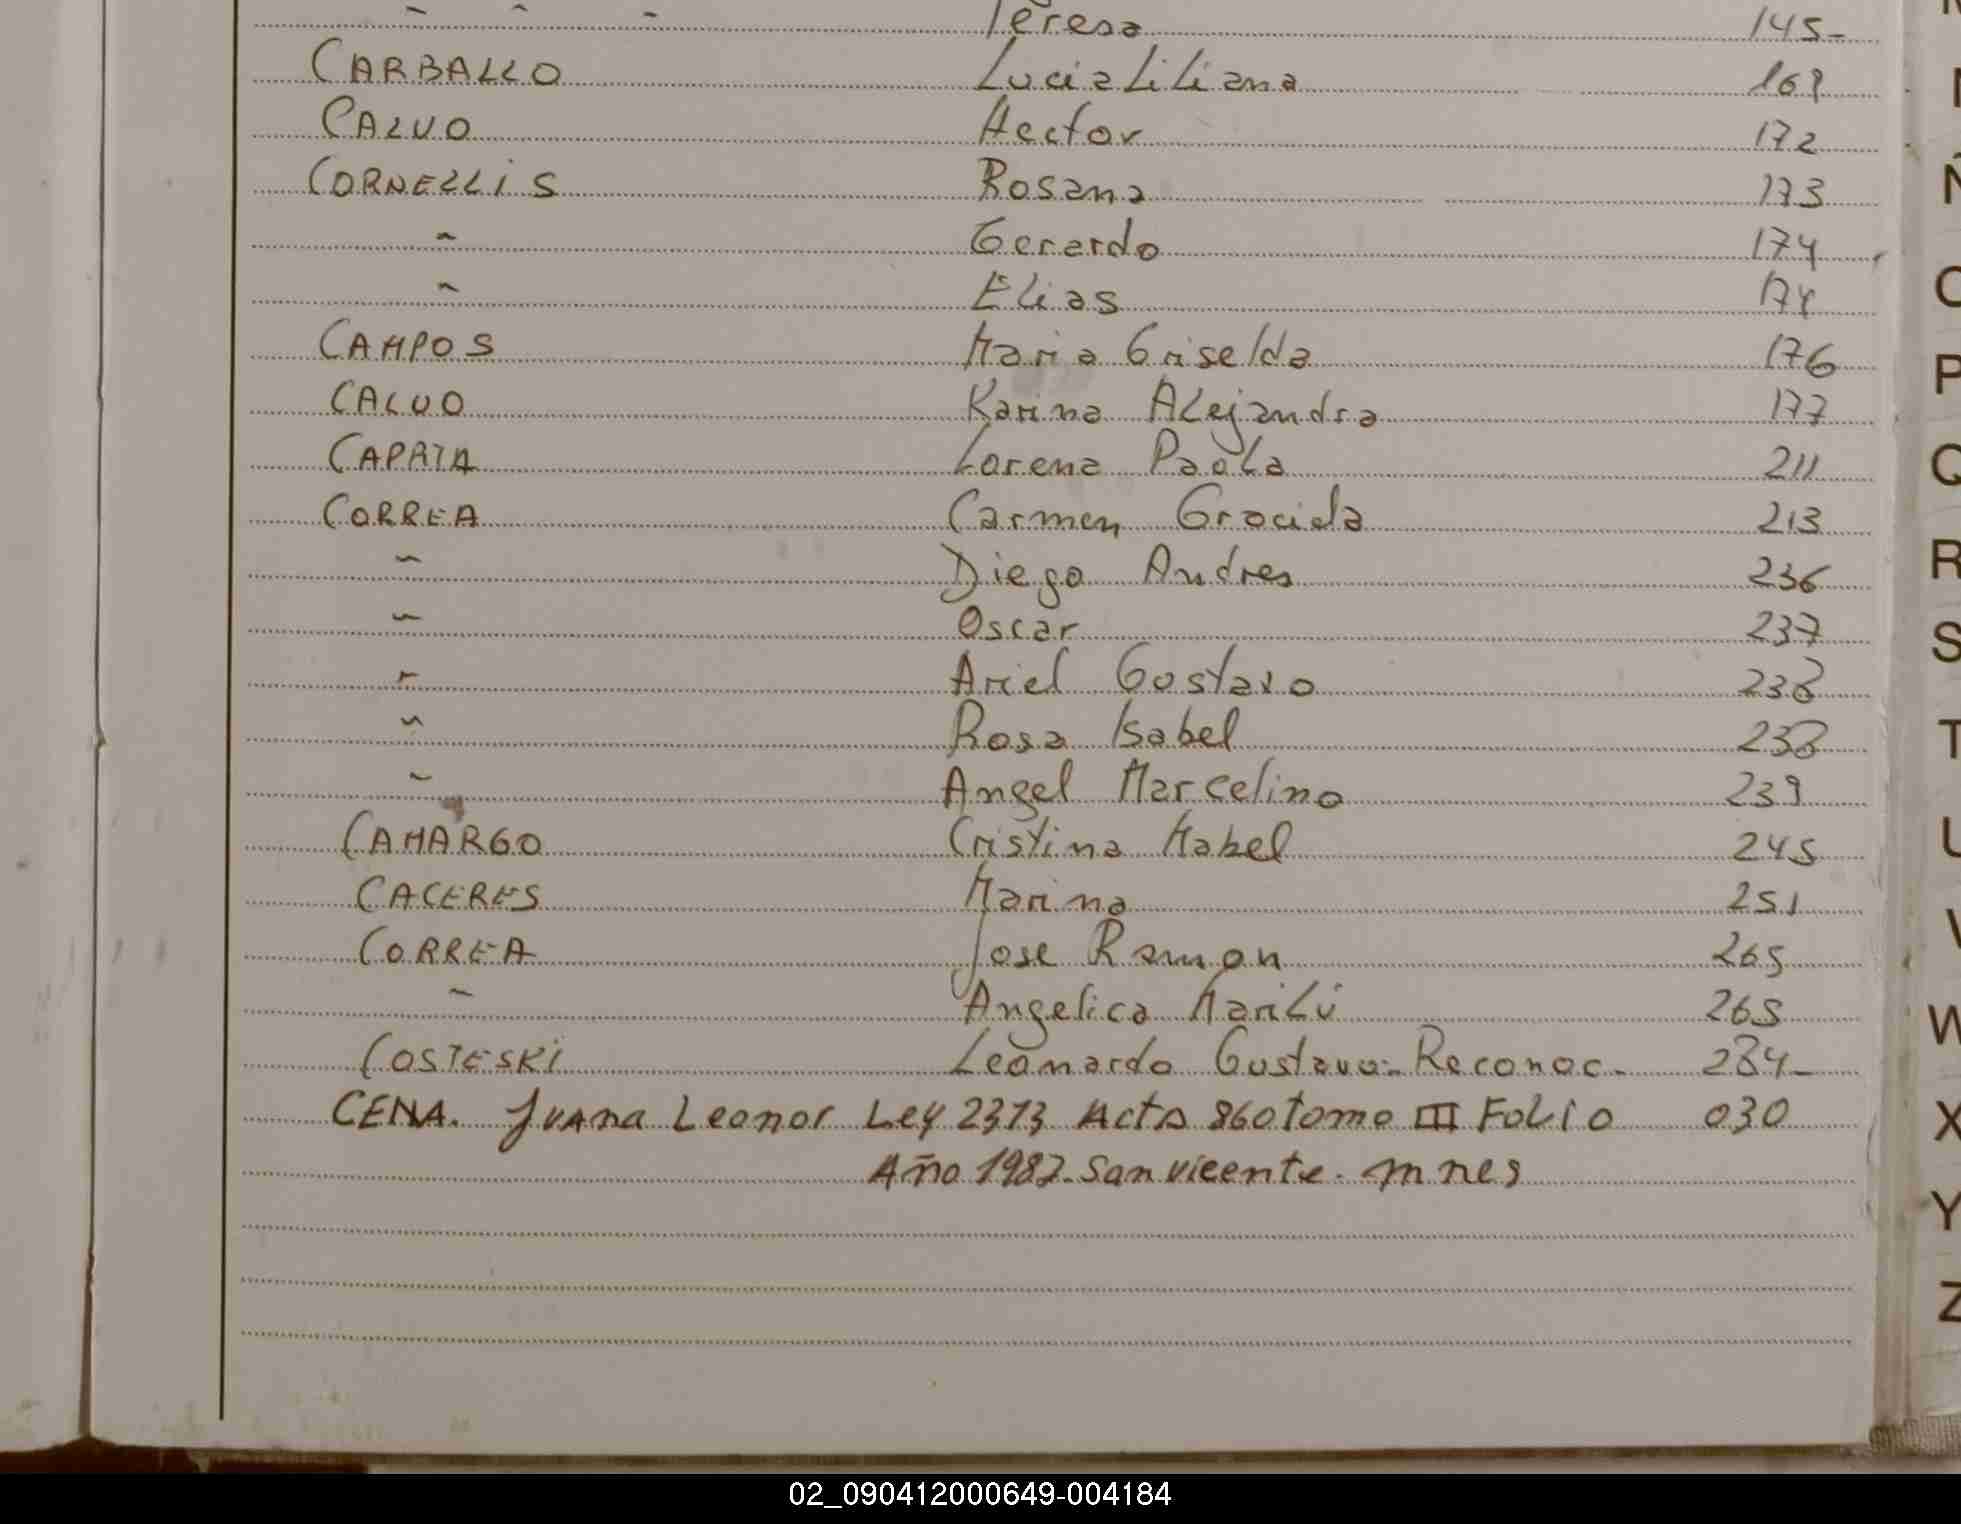 ~ ~ ~ Teresa 145-
CARBALLO Lucia Liliana 169
CALVO Hector 172
CORNELLIS Rosana 173
~ Gerardo 174
~ Elias 174
CAMPOS Maria Griselda 176
CALVO Karina Alejandra 177
Lorena Paola 211
CORREA Carmen Graciela 213
~ Diego Andres 236
~ Oscar 237
~ Ariel Gustavo 238
~ Rosa Isabel 238
~ Angel Marcelino 239
CAMARGO Cristina Mabel 245
CACERES Marina 251
CORREA Jose Ramon 265
~ Angelica Marilú 265
COSTESKI Leonardo Gustavo- Reconoc- 284-
CENA. Juana Leonor Ley 2373 Acta 860 tomo III Folio 030
Año 1987. San Vicente. mnes
Ñ
O
P
Q
R
S
T
U
V
W
X
Y
Z
02_090412000649-004184